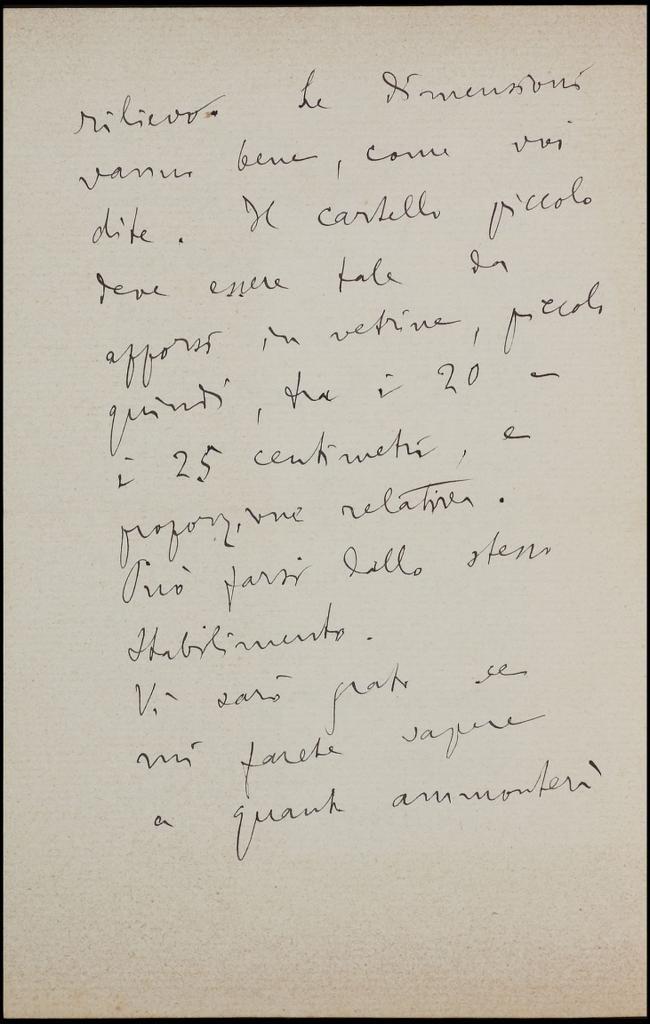 rilievo. Le dimensioni
vanno bene, come voi
dite. Il cartello piccolo
deve essere tale da
apporsi in vetrine, piccolo
quindi, tra i 20 e
i 25 centimetri, e
proporzione relativa.
Può farsi dallo stesso
Stabilimento.
Vi sarò grato se
mi farete sapere
a quanto ammonterà